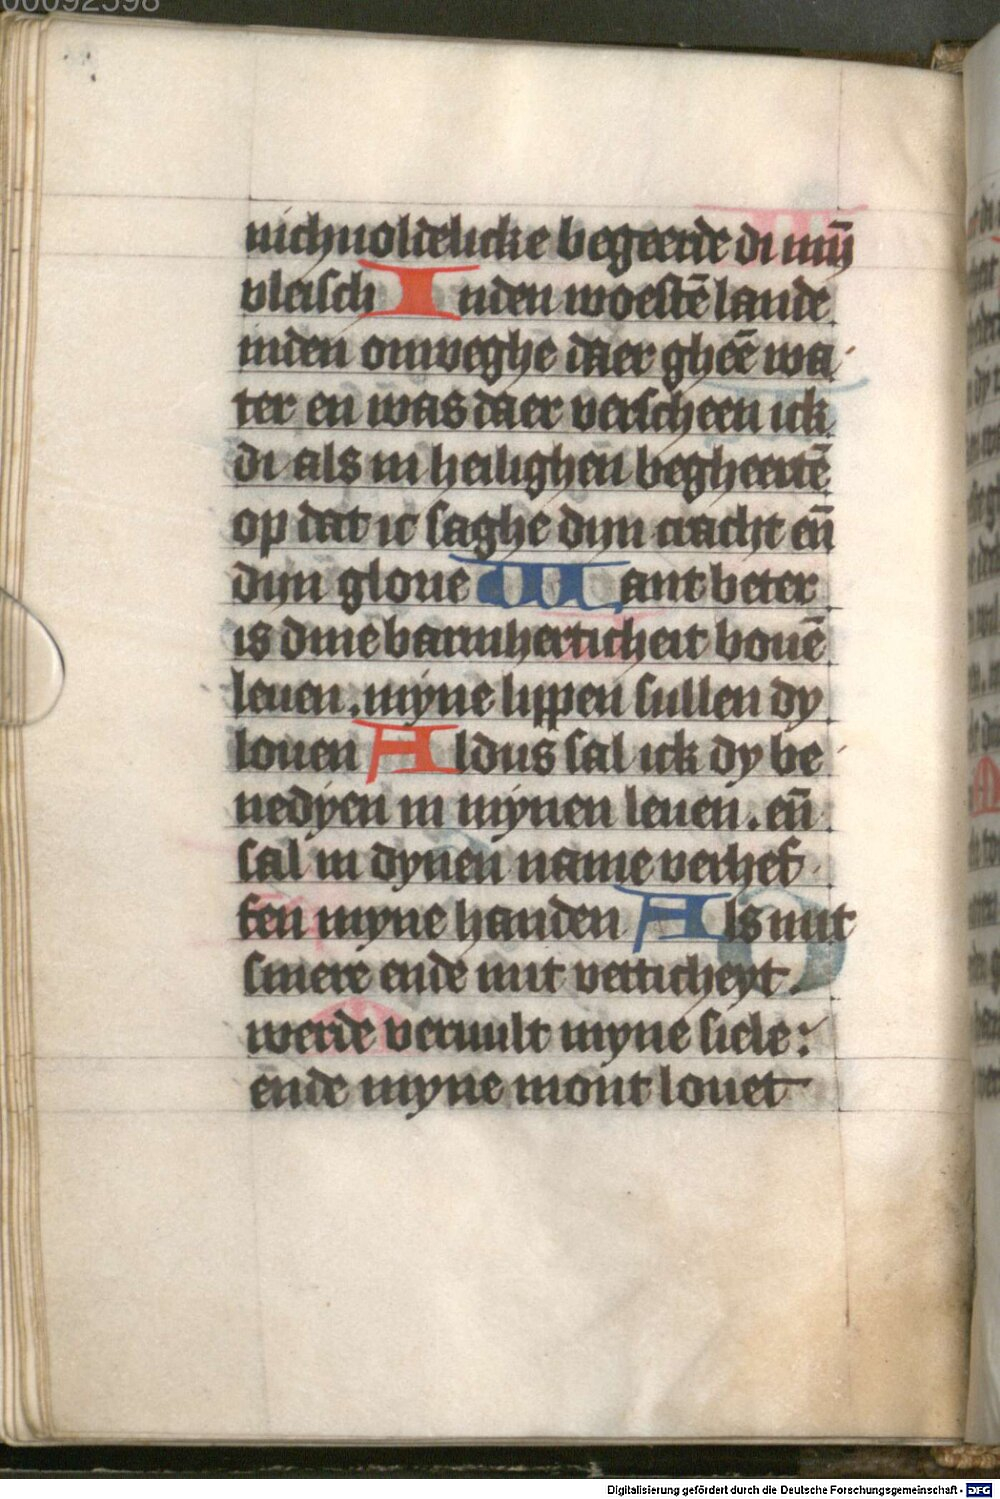 00092598
nichuoldelicke begeerde di mijn̄
vleisch Inden woestē lande
inden onweghe daer gheē wa
ter en was daer verscheen ick
di als in heilighen̄ begheertē
op dat ic saghe dijn cracht en̄
dijn gloue Want beter
is dine barmherticheit bouē
leuen. myne lippen sullen dy
louen Aldus sal ick dy be
nedyen in mynen leuen. en̄
sal in dynen name verhef
fen myne handen Als mit
smere ende mit vetticheyt.
werde veruult myne siele:
ende myne mont louet
Digitalisierung gefördert durch die Deutsche Forschungsgemeinschaft - DFG